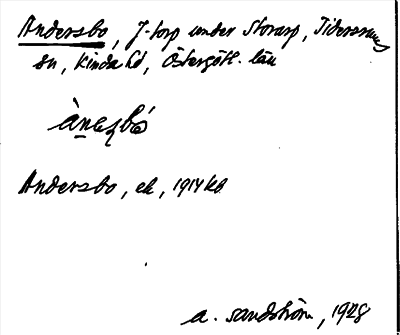 Andersbo, J-torp under Storarp, Tidersrums
sn, Kinda hd, Östergötl. län
Andersbo, ek, 1914 kb.
A. Sandström, 1928